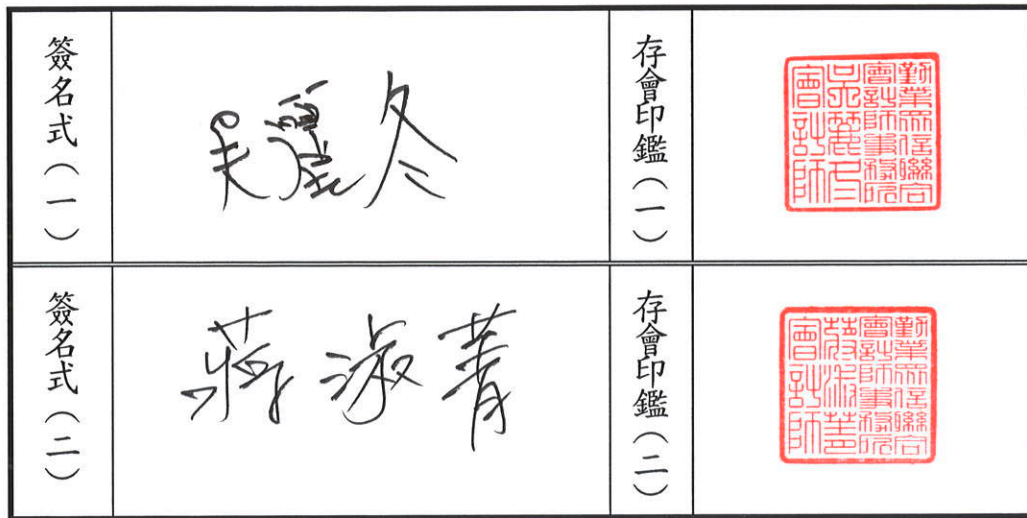 簽名式(一)
吳麗冬
存會印鑑(一)
勤業眾信聯合
會計師事務所
吳麗冬
會計師
簽名式(二)
蔣淑菁
存會印鑑(二)
勤業眾信聯合
會計師事務所
蔣淑菁
會計師